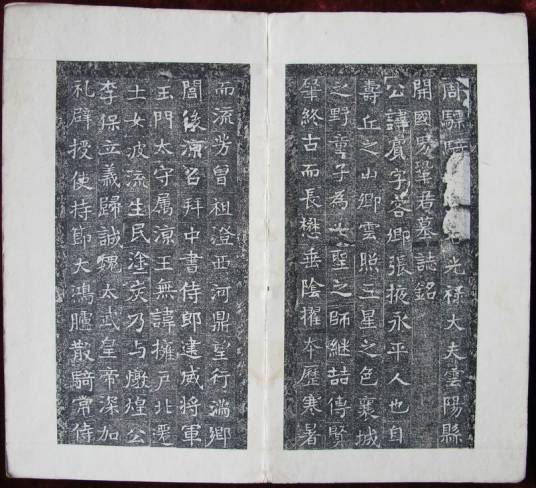 周驃騎 光祿大夫雲陽縣
開國男鞏君墓誌銘
公諱賓字客卿張掖永平人也自
壽丘之山卿雲照三星之色襄城
之野童子為七聖之師継喆傳賢
肇終古而長懋垂陰擢夲歷寒暑
而流芳曾祖澄西河鼎望行滿鄉
閭後涼召拜中書侍郎建威將軍
玉門太守属涼王無諱擁戶北遷
士女波流生民塗炭乃与燉煌公
李保立義歸誠魏太武皇帝深加
礼辟授使持節大鴻臚散騎常侍